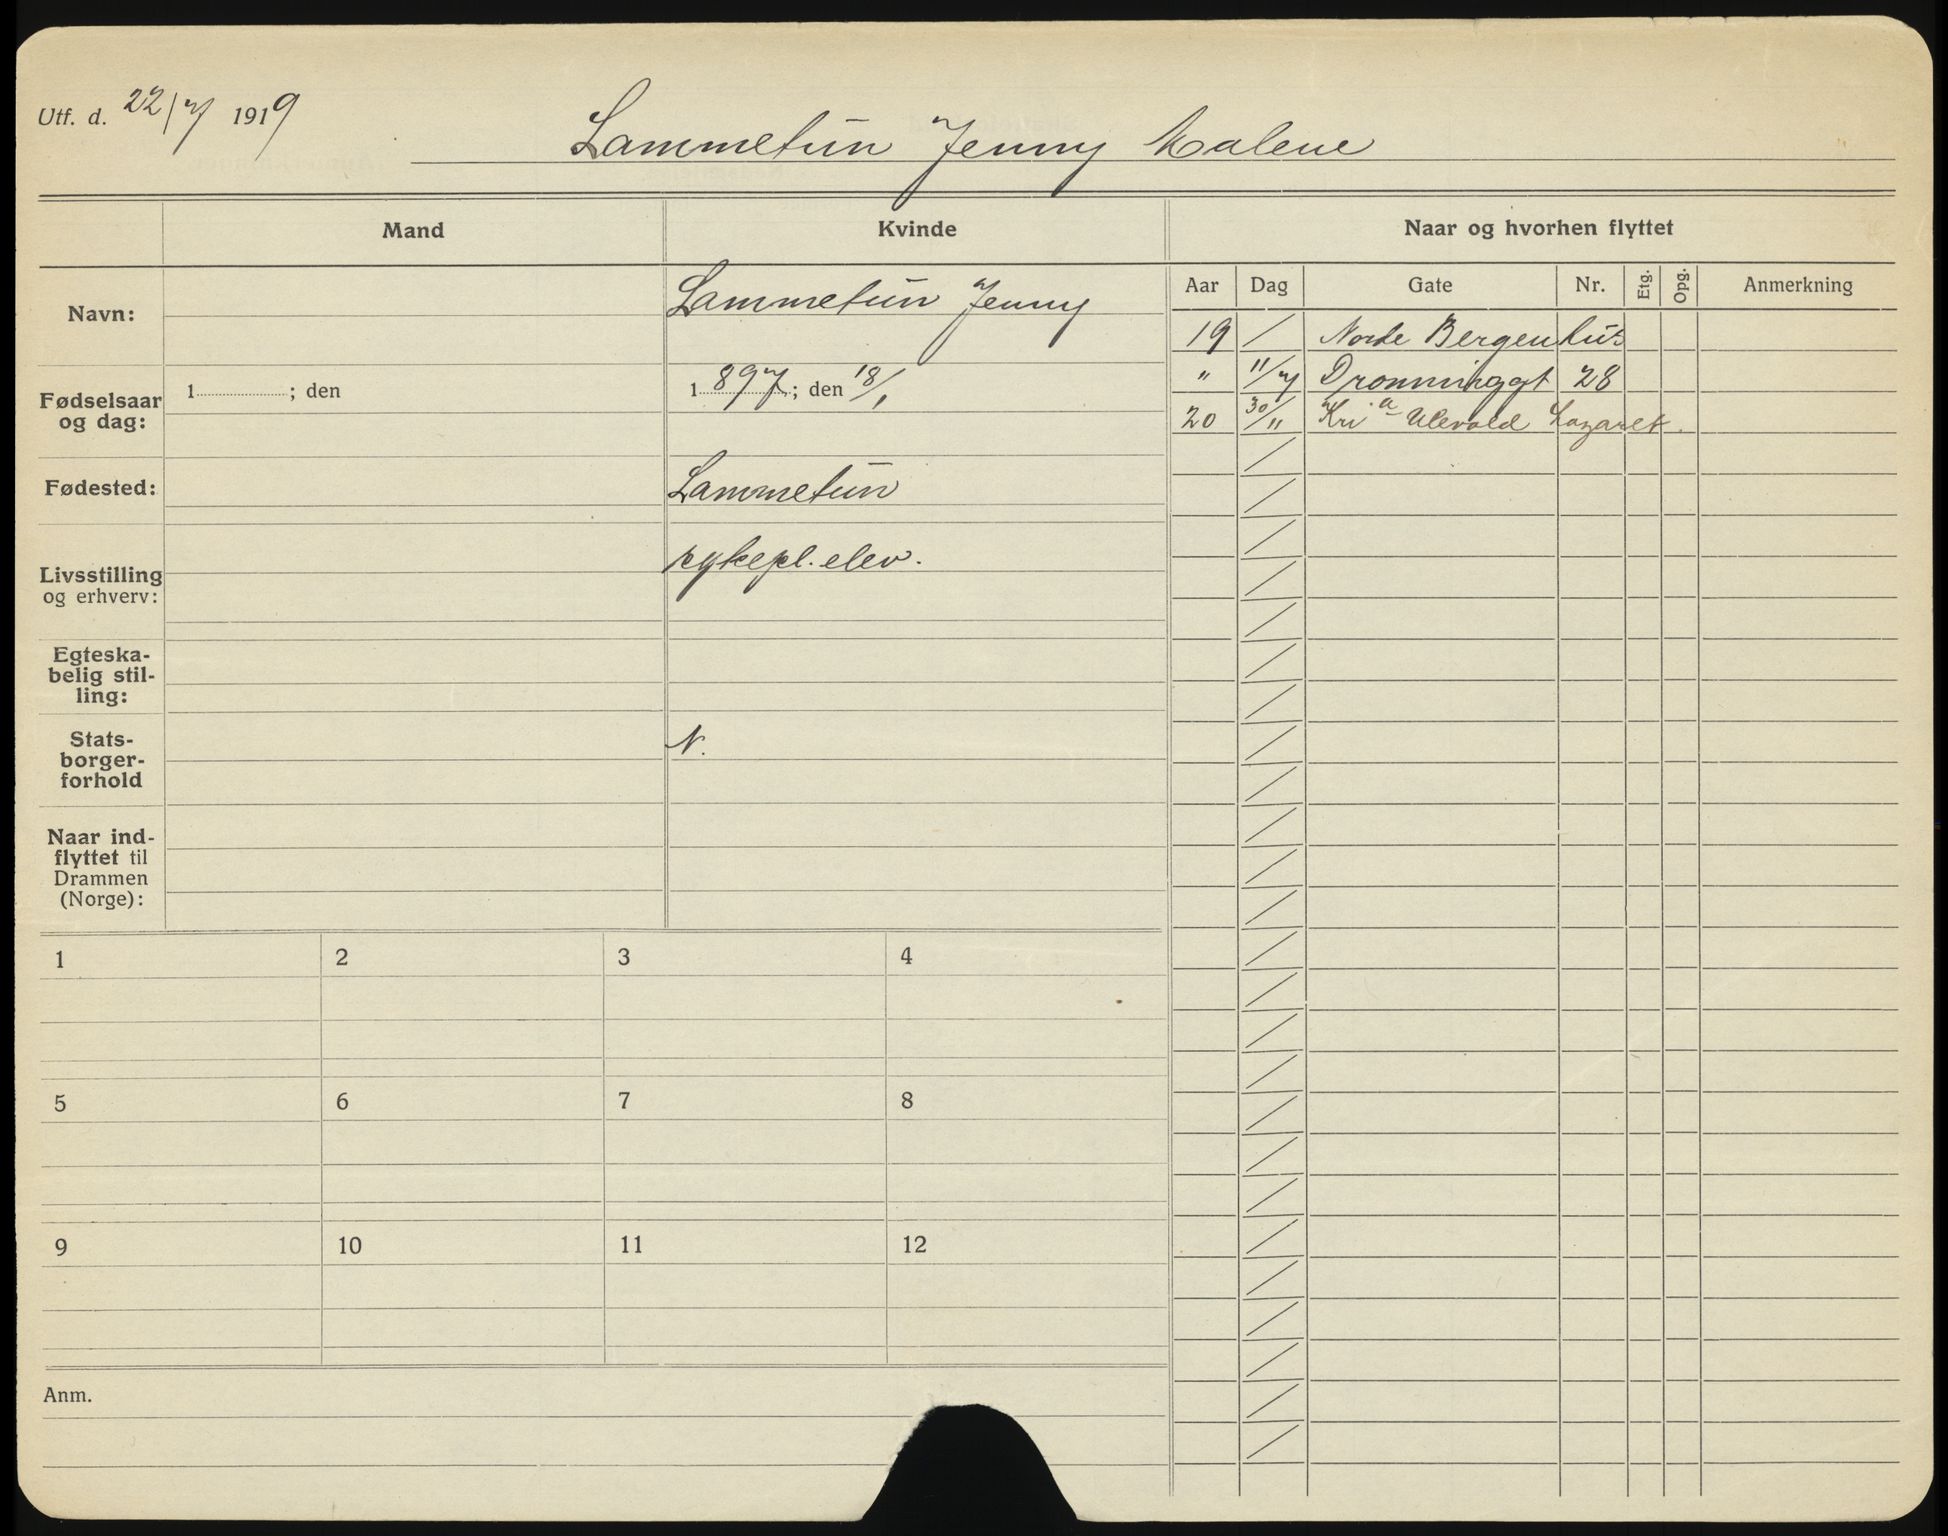 Utf. d. 22/7 1919
Lammetun Jenny Malene
Mand
Kvinde
Naar og hvorhen flyttet
Aar Dag Gate Nr. Etg. Opg. Anmerkning
Navn:
Lammetun Jenny
Fødselsaar og dag:
1 ; den
1897; den 18/1
Fødested:
Lammetun
Livsstilling
og erhverv:
sykepl. elev.
Egteska-
belig stil-
ling:
Stats-
borger-
forhold
N.
Naar ind-
flyttet til
Drammen
(Norge):
19 / Nordre Bergenhus
" 11/7 Dronninggt 28
20 30/11 Kri a Ulevold Lazaret.
1 2 3 4
5 6 7 8
9 10 11 12
Anm.